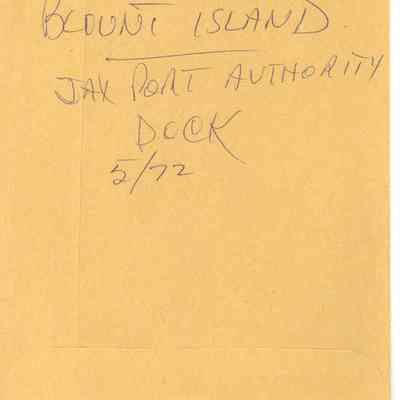 BLOUNT ISLAND.
JAX PORT AUTHORITY
DOCK
5/72